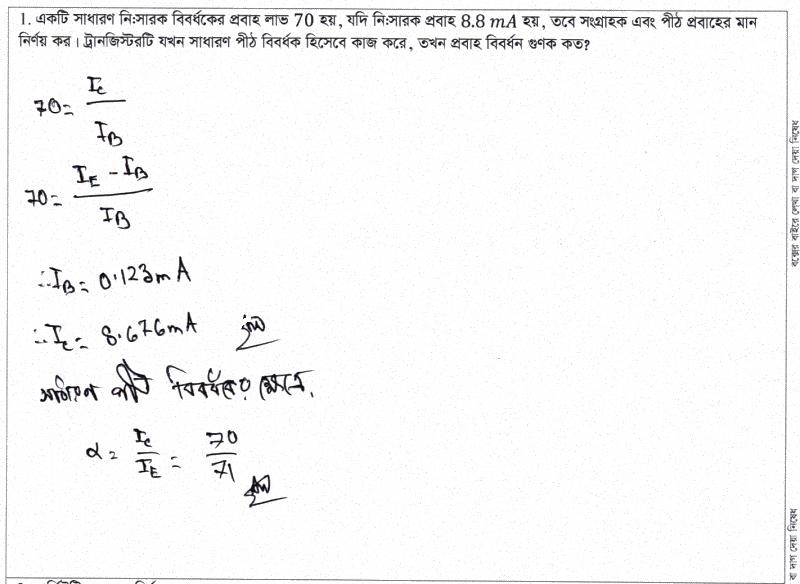 1. একটি সাধারণ নি:সারক বিবর্ধকের প্রবাহ লাভ 70 হয়, যদি নি:সারক প্রবাহ 8.8 mA হয়, তবে সংগ্রাহক এবং পীঠ প্রবাহের মান
নির্ণয় কর। ট্রানজিস্টরটি যখন সাধারণ পীঠ বিবর্ধক হিসেবে কাজ করে, তখন প্রবাহ বিবর্ধন গুণক কত?
70 = I_C / I_B
70 = (I_E - I_B) / I_B
∴ I_B = 0.123mA
∴ I_C = 8.676mA
সাধারণ পীঠ বিবর্ধকের ক্ষেত্রে,
α = I_C / I_E = 70 / 71
বক্সের বাইরে লেখা বা দাগ দেয়া নিষেধ
বা দাগ দেয়া নিষেধ